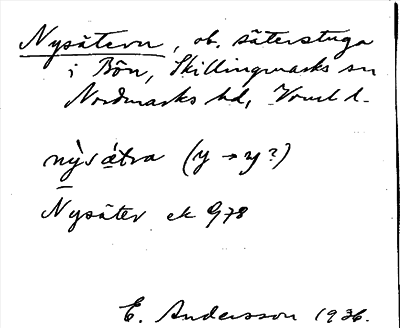 Nysätern, ob. säterstuga
i Bön, Skillingmarks sn
Nordmarks hd, Värml l.
nỳsätra (y → y?)
Nysäter ek 978
E. Andersson 1936.